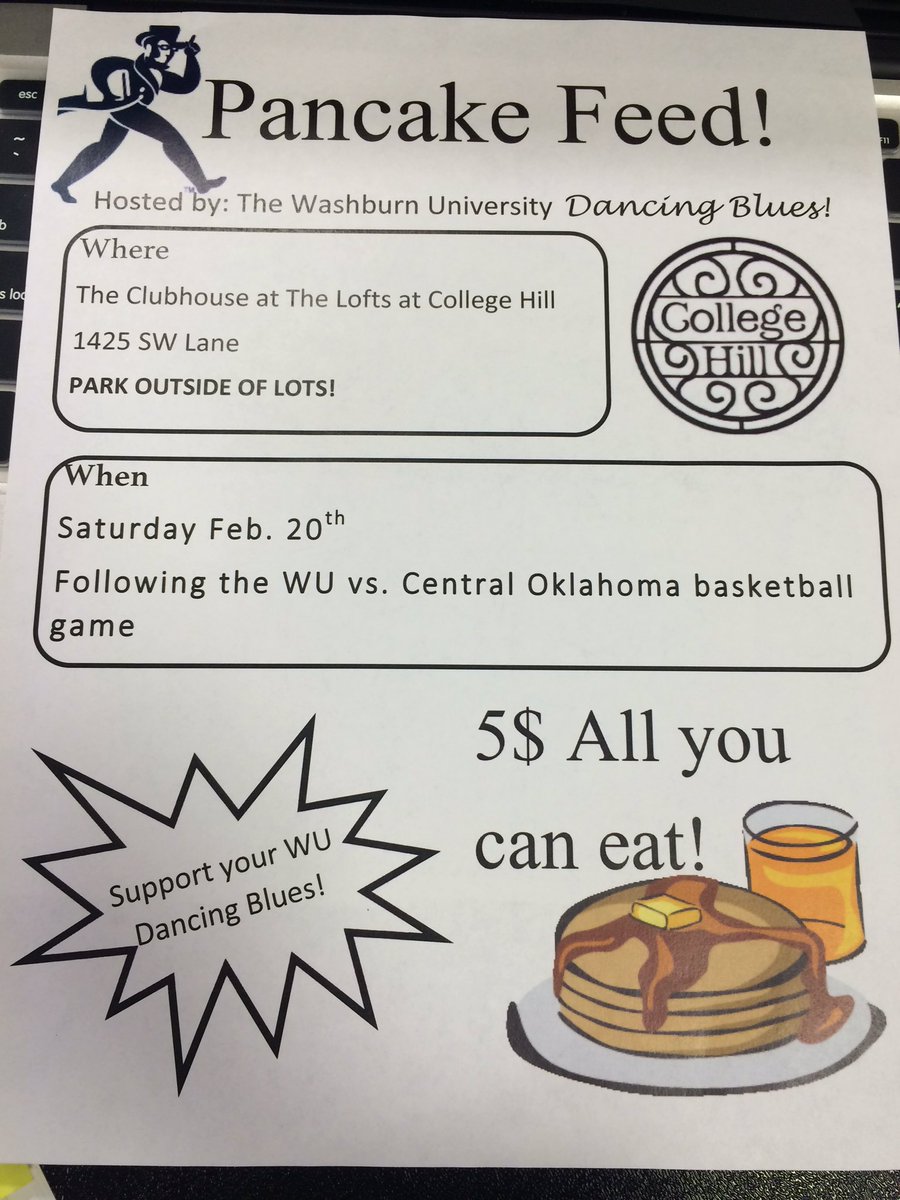 esc
~
`
F11
b
s loc
Pancake Feed!
TM
Hosted by: The Washburn University Dancing Blues!
Where
The Clubhouse at The Lofts at College Hill
1425 SW Lane
PARK OUTSIDE OF LOTS!
College
Hill
When
Saturday Feb. 20th
Following the WU vs. Central Oklahoma basketball
game
5$ All you
can eat!
Support your WU
Dancing Blues!